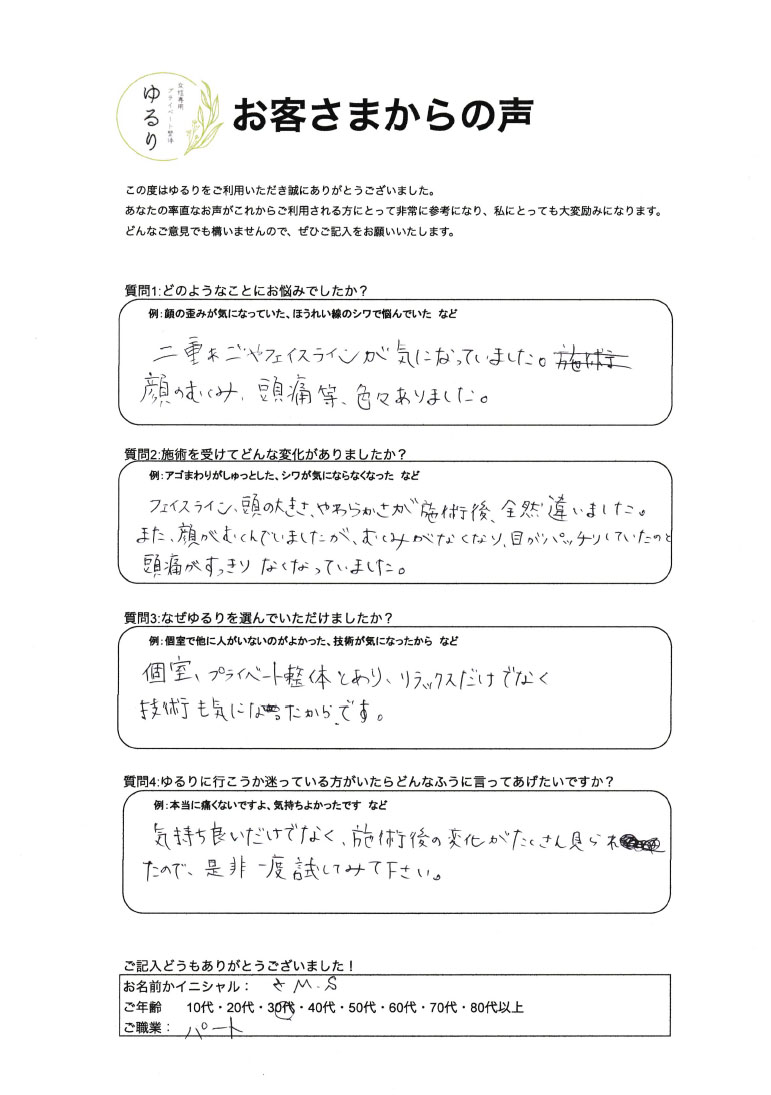 女性専用
プライベート整体
ゆるり
お客さまからの声
この度はゆるりをご利用いただき誠にありがとうございました。
あなたの率直なお声がこれからご利用される方にとって非常に参考になり、私にとっても大変励みになります。
どんなご意見でも構いませんので、ぜひご記入をお願いいたします。
質問1:どのようなことにお悩みでしたか？
例：顔の歪みが気になっていた、ほうれい線のシワで悩んでいた など
二重あごやフェイスラインが気になっていました。施術
顔のむくみ、頭痛等、色々ありました。
質問2:施術を受けてどんな変化がありましたか？
例：アゴまわりがしゅっとした、シワが気にならなくなった など
フェイスライン、頭の大きさ、やわらかさが施術後、全然違いました。
また、顔がむくんでいましたが、むくみがなくなり、目がパッチリしていたのと
頭痛がすっきりなくなっていました。
質問3:なぜゆるりを選んでいただけましたか？
例：個室で他に人がいないのがよかった、技術が気になったから など
個室、プライベート整体とあり、リラックスだけでなく
技術も気になったからです。
質問4:ゆるりに行こうか迷っている方がいたらどんなふうに言ってあげたいですか？
例：本当に痛くないですよ、気持ちよかったです など
気持ち良いだけでなく、施術後の変化がたくさん見られ
たので、是非一度試してみて下さい。
ご記入どうもありがとうございました！
お名前かイニシャル： M.S
ご年齢 10代・20代・30代・40代・50代・60代・70代・80代以上
ご職業： パート